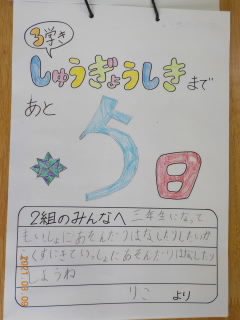 3学き
しゅうぎょうしきまで
あと
5日
2組のみんなへ 三年生になって
もいっしょにあそんだりはなしたりしたいから
くすにきていっしょにあそんだりはなしたり
しようね
りこ より